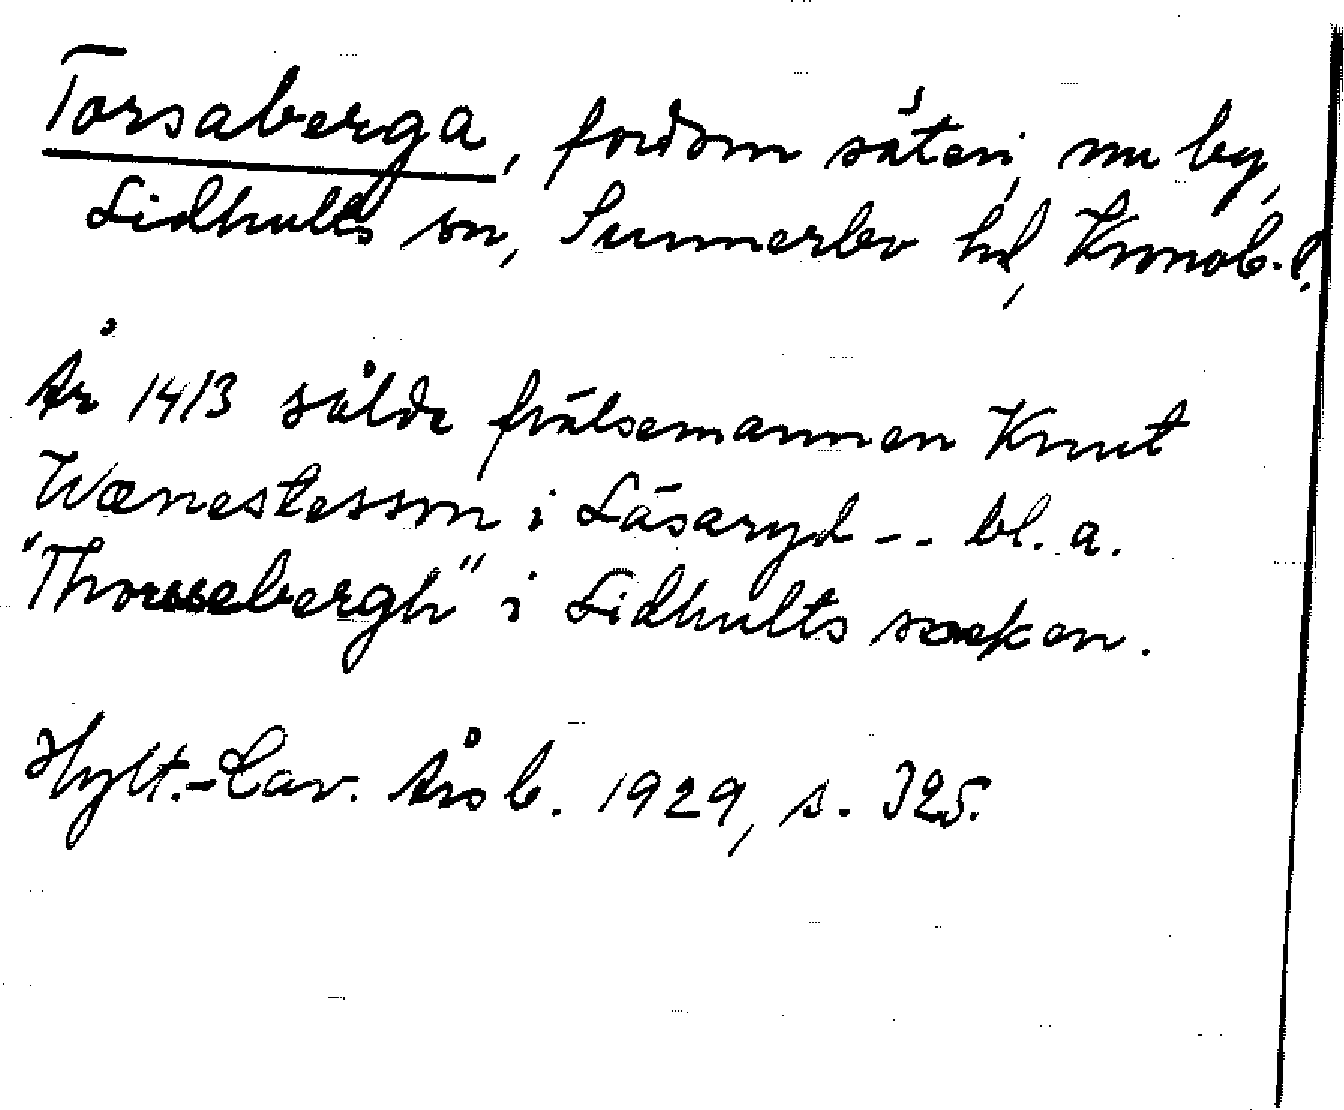 Torsaberga, fordom säteri, nu by,
Lidhults sn, Sunnerbo hd, Kronob. l.
År 1413 sålde frälsemannen Knut
Wænestesson i Läsaryd -- bl. a.
"Thorssebergh" i Lidhults socken.
Hylt.-Cav. Årsb. 1929, s. 325.